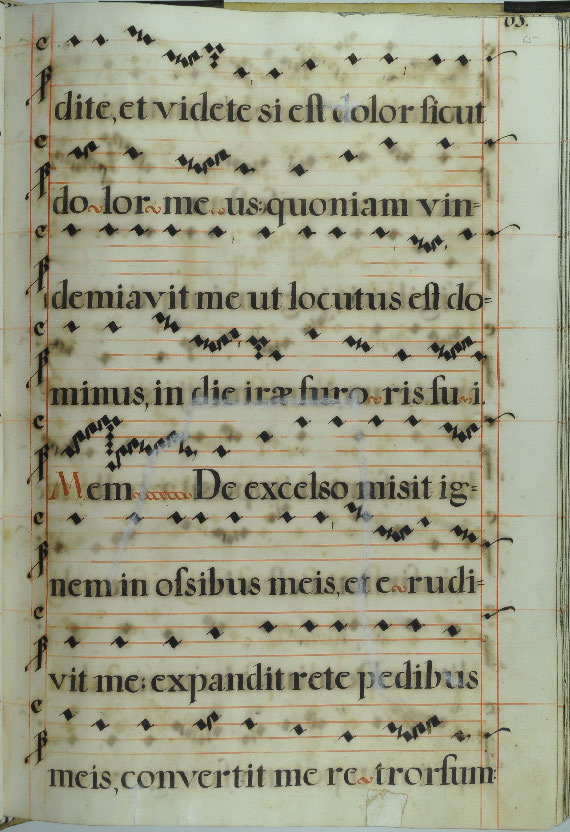 65.
65
dite, et videte si est dolor sicut
do~lor~ me us: quoniam vin=
demiavit me ut locutus est do=
minus, in die iræ furo~ris su~i.
Mem~ De excelso misit ig=
nem in ossibus meis, et e~rudi=
vit me: expandit rete pedibus
meis, convertit me re~trorsum